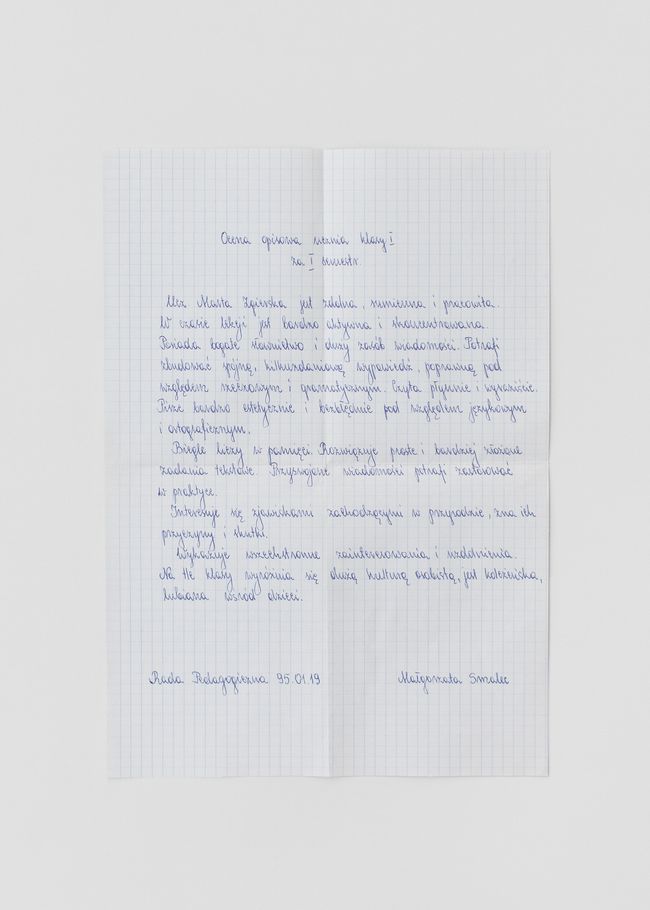 Ocena opisowa ucznia klasy I
za I semestr.
Ucz. Marta Zgierska jest zdolna, sumienna i pracowita.
W czasie lekcji jest bardzo aktywna i skoncentrowana.
Posiada bogate słownictwo i duży zasób wiadomości. Potrafi
zbudować spójną, kilkuzdaniową wypowiedź, poprawną pod
względem rzeczowym i gramatycznym. Czyta płynnie i wyraziście.
Pisze bardzo estetycznie i bezbłędnie pod względem językowym
i ortograficznym.
Biegle liczy w pamięci. Rozwiązuje proste i bardziej złożone
zadania tekstowe. Przyswojone wiadomości potrafi zastosować
w praktyce.
Interesuje się zjawiskami zachodzącymi w przyrodzie, zna ich
przyczyny i skutki.
Wykazuje wszechstronne zainteresowania i uzdolnienia.
Na tle klasy wyróżnia się dużą kulturą osobistą, jest koleżeńska,
lubiana wśród dzieci.
Rada Pedagogiczna 95.01.19
Małgorzata Smalec